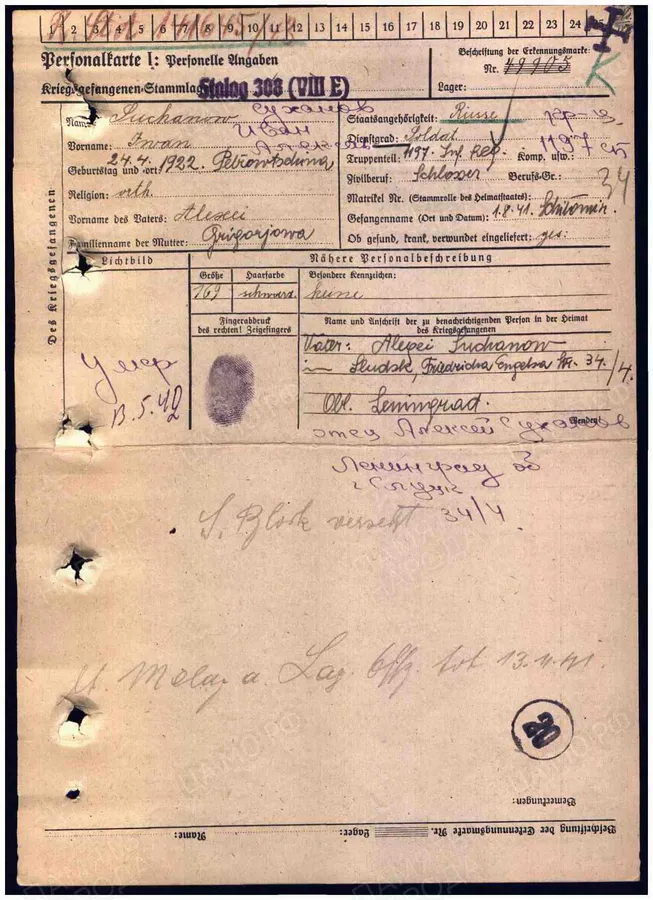 1 2 3 4 5 6 7 8 9 10 11 12 13 14 15 16 17 18 19 20 21 22 23 24 25
Personalkarte I: Personelle Angaben
Beschriftung der Erkennungsmarke:
Nr. 49905
Kriegsgefangenen-Stammlager: Stalag 308 (VIII E)
Lager:
К
Des Kriegsgefangenen
Name: Suchanow
Суханов
Vorname: Iwan
Иван
Geburtstag und -ort: 24.4.1922. Petrowtschina
Religion: orth.
Vorname des Vaters: Alexei
Familienname der Mutter: Grigorjowa
Staatsangehörigkeit: Russe
Dienstgrad: Soldat
Truppenteil: 1197. Inf. Reg. Komp. usw.:
1197
Zivilberuf: Schlosser Berufs-Gr.:
34
Matrikel Nr. (Stammrolle des Heimatstaates)
Gefangennahme (Ort und Datum): 1.8.41.
Ob gesund, krank, verwundet eingeliefert: ges:
Lichtbild
Nähere Personalbeschreibung
Größe Haarfarbe Besondere Kennzeichen:
169 schwarz. keine
Fingerabdruck
des rechten! Zeigefingers
Name und Anschrift der zu benachrichtigenden Person in der Heimat
des Kriegsgefangenen
Vater: Alexei Suchanow
Sludsk, Friedricha Engelsa Str. 34/4.
Obl. Leningrad.
Wenden!
Умер
13.5.42
отец Алексей Суханов
Ленинград об
г Слуцк
34/4
S. Block versetzt
lt. Meldg a. Lag. Offz. tot 13.11.41.
20
Bemerkungen:
Beschriftung der Erkennungsmarke Nr. Lager: Name: